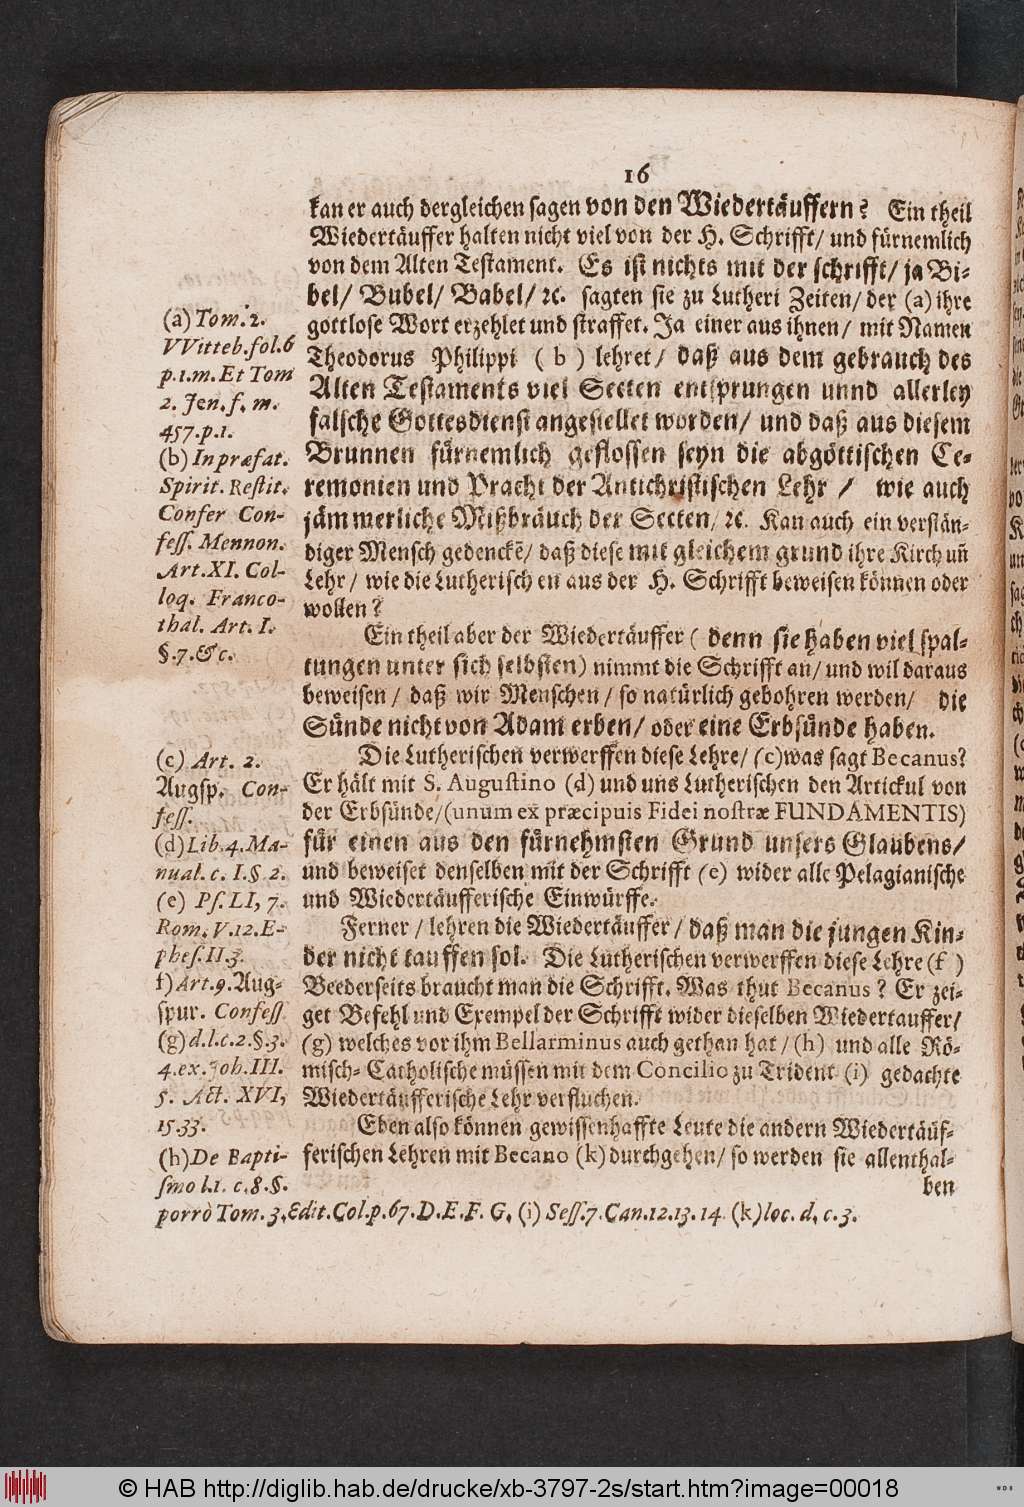 16
kan er auch dergleichen sagen von den Wiedertäuffern? Ein theil
Wiedertäuffer halten nicht viel von der H. Schrifft/ und fürnemlich
von dem Alten Testament. Es ist nichts mit der schrifft/ ja Bi-
bel/ Bubel/ Babel/ ꝛc. sagten sie zu Lutheri Zeiten/ der (a) ihre
gottlose Wort erzehlet und straffet. Ja einer aus ihnen/ mit Namen
Theodorus Philippi ( b ) lehret/ daß aus dem gebrauch des
Alten Testaments viel Secten entsprungen unnd allerley
falsche Gottesdienst angestellet worden/ und daß aus diesem
Brunnen fürnemlich geflossen seyn die abgöttischen Ce-
remonien und Pracht der Antichristischen Lehr / wie auch
jämmerliche Mißbräuch der Secten/ ꝛc. Kan auch ein verstän-
diger Mensch gedenckē/ daß diese mit gleichem grund ihre Kirch uñ
Lehr/ wie die Lutherischen aus der H. Schrifft beweisen können oder
wollen?
Ein theil aber der Wiedertäuffer ( denn sie haben viel spal-
tungen unter sich selbsten) nimmt die Schrifft an/ und wil daraus
beweisen/ daß wir Menschen/ so natürlich gebohren werden/ die
Sünde nicht von Adam erben/ oder eine Erbsünde haben.
Die Lutherischen verwerffen diese Lehre/ (c) was sagt Becanus?
Er hält mit S. Augustino (d) und uns Lutherischen den Artickul von
der Erbsünde/ (unum ex præcipuis Fidei nostræ FUNDAMENTIS)
für einen aus den fürnehmsten Grund unsers Glaubens/
und beweiset denselben mit der Schrifft (e) wider alle Pelagianische
und Wiedertäufferische Einwürffe.
Ferner / lehren die Wiedertäuffer/ daß man die jungen Kin-
der nicht tauffen sol. Die Lutherischen verwerffen diese Lehre (f )
Beederseits braucht man die Schrifft. Was thut Becanus? Er zei-
get Befehl und Exempel der Schrifft wider dieselben Wiedertauffer/
(g) welches vor ihm Bellarminus auch gethan hat/ (h) und alle Rö-
misch-Catholische müssen mit dem Concilio zu Trident (i) gedachte
Wiedertäufferische Lehr verfluchen.
Eben also können gewissenhaffte Leute die andern Wiedertäuf-
ferischen Lehren mit Becano (k) durchgehen/ so werden sie allenthal-
ben
(a) Tom. 2.
VVitteb. fol. 6
p. 1. m. Et Tom
2. Jen. f. m.
457. p. 1.
(b) In præfat.
Spirit. Restit.
Confer Con-
fess. Mennon.
Art. XI. Col-
loq. Franco-
thal. Art. I.
§. 7. &c.
(c) Art. 2.
Augsp. Con-
fess.
(d) Lib. 4. Ma-
nual. c. I. § 2.
(e) Ps. LI, 7.
Rom. V. 12. E-
phes. II 3.
f) Art. 9. Aug-
spur. Confess.
(g) d. l. c. 2. §. 3.
4. ex. Joh. III.
5. Act. XVI,
15. 33.
(h) De Bapti-
smo l. 1. c. 8. §.
porrò Tom. 3. Edit. Col. p. 67. D. E. F. G. (i) Sess. 7. Can. 12. 13. 14. (k) loc. d. c. 3.
© HAB http://diglib.hab.de/drucke/xb-3797-2s/start.htm?image=00018